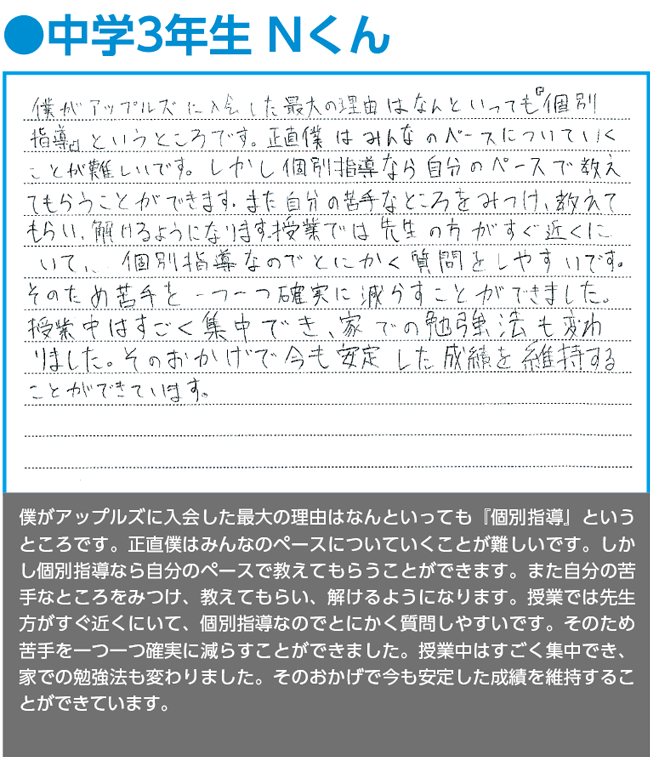 ●中学3年生 Nくん
僕がアップルズに入会した最大の理由はなんといっても『個別
指導』というところです。正直僕はみんなのペースについていく
ことが難しいです。しかし個別指導なら自分のペースで教え
てもらうことができます。また自分の苦手なところをみつけ、教えて
もらい、解けるようになります。授業では先生の方がすぐ近くに
いて、個別指導なのでとにかく質問をしやすいです。
そのため苦手を一つ一つ確実に減らすことができました。
授業中はすごく集中でき、家での勉強法も変わ
りました。そのおかげで今も安定した成績を維持する
ことができています。
僕がアップルズに入会した最大の理由はなんといっても『個別指導』という
ところです。正直僕はみんなのペースについていくことが難しいです。しか
し個別指導なら自分のペースで教えてもらうことができます。また自分の苦
手なところをみつけ、教えてもらい、解けるようになります。授業では先生
方がすぐ近くにいて、個別指導なのでとにかく質問しやすいです。そのため
苦手を一つ一つ確実に減らすことができました。授業中はすごく集中でき、
家での勉強法も変わりました。そのおかげで今も安定した成績を維持するこ
とができています。